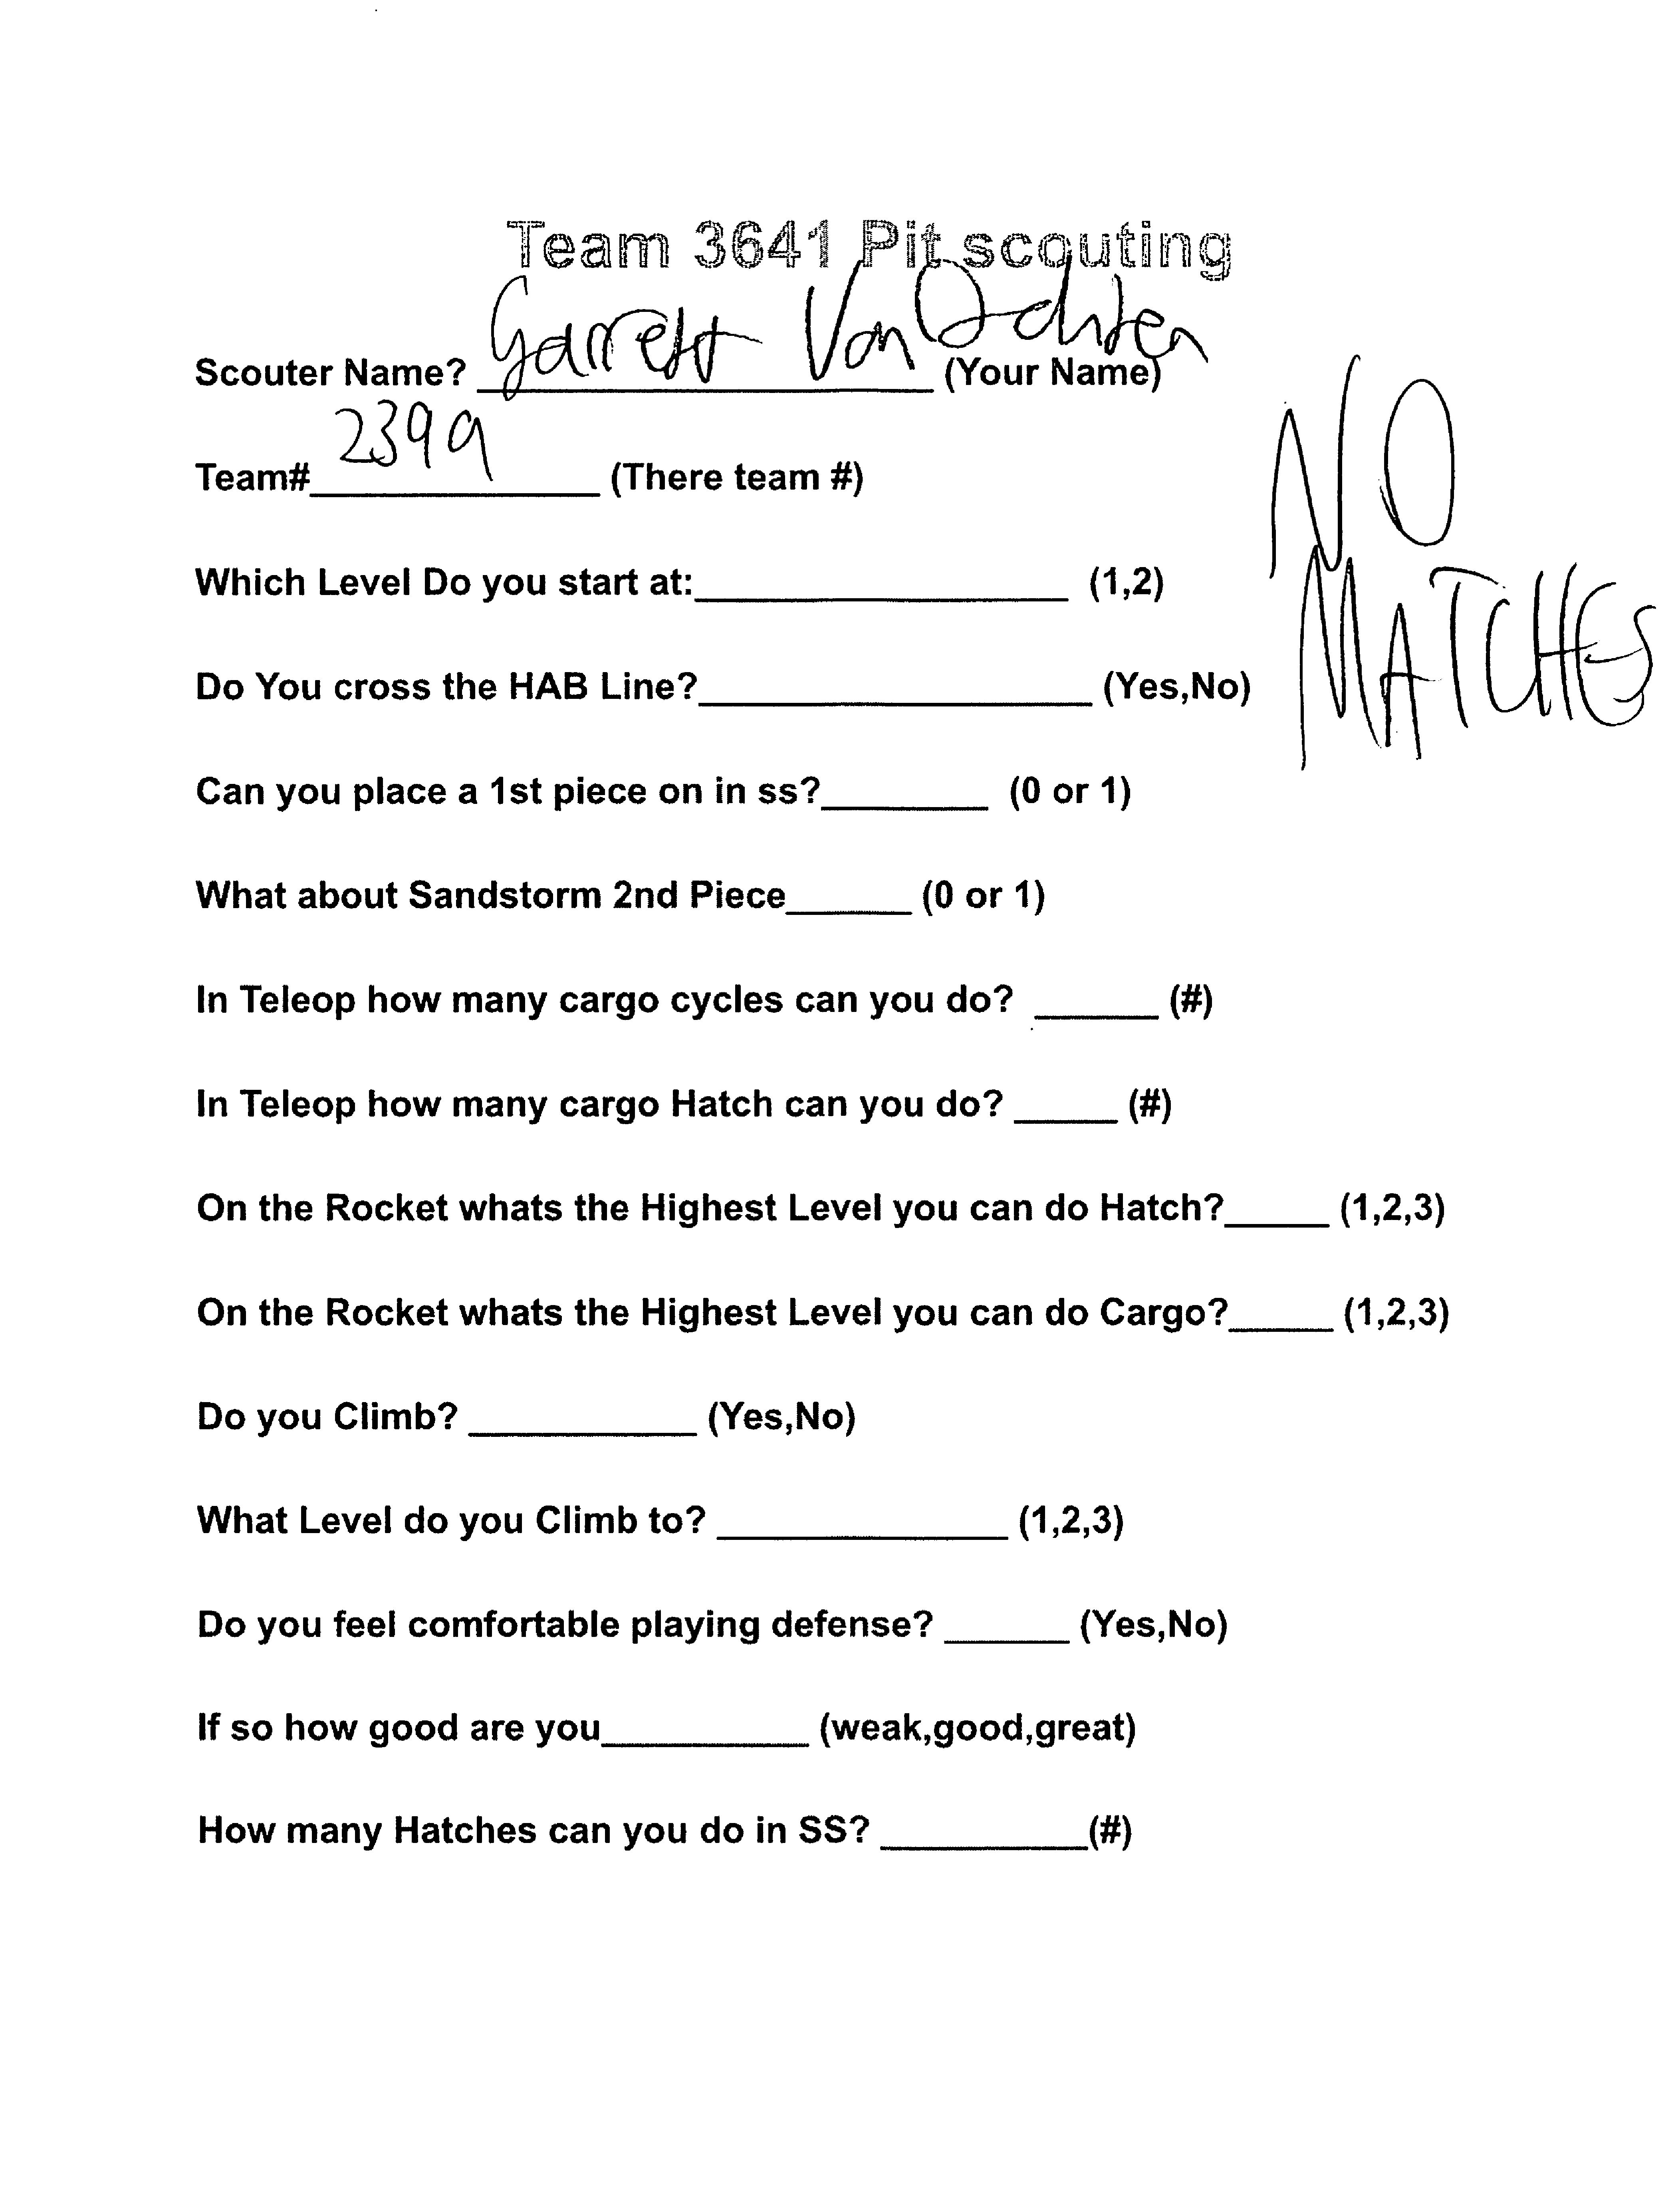 Team 3641 Pit scouting
Scouter Name? Garrett Van Ochten (Your Name)
Team# 2399 (There team #)
NO
MATCHES
Which Level Do you start at:__________________ (1,2)
Do You cross the HAB Line?___________________ (Yes,No)
Can you place a 1st piece on in ss?________ (0 or 1)
What about Sandstorm 2nd Piece______ (0 or 1)
In Teleop how many cargo cycles can you do? ______ (#)
In Teleop how many cargo Hatch can you do? _____ (#)
On the Rocket whats the Highest Level you can do Hatch?_____ (1,2,3)
On the Rocket whats the Highest Level you can do Cargo?_____ (1,2,3)
Do you Climb? ___________ (Yes,No)
What Level do you Climb to? ______________ (1,2,3)
Do you feel comfortable playing defense? ______ (Yes,No)
If so how good are you__________ (weak,good,great)
How many Hatches can you do in SS? __________(#)